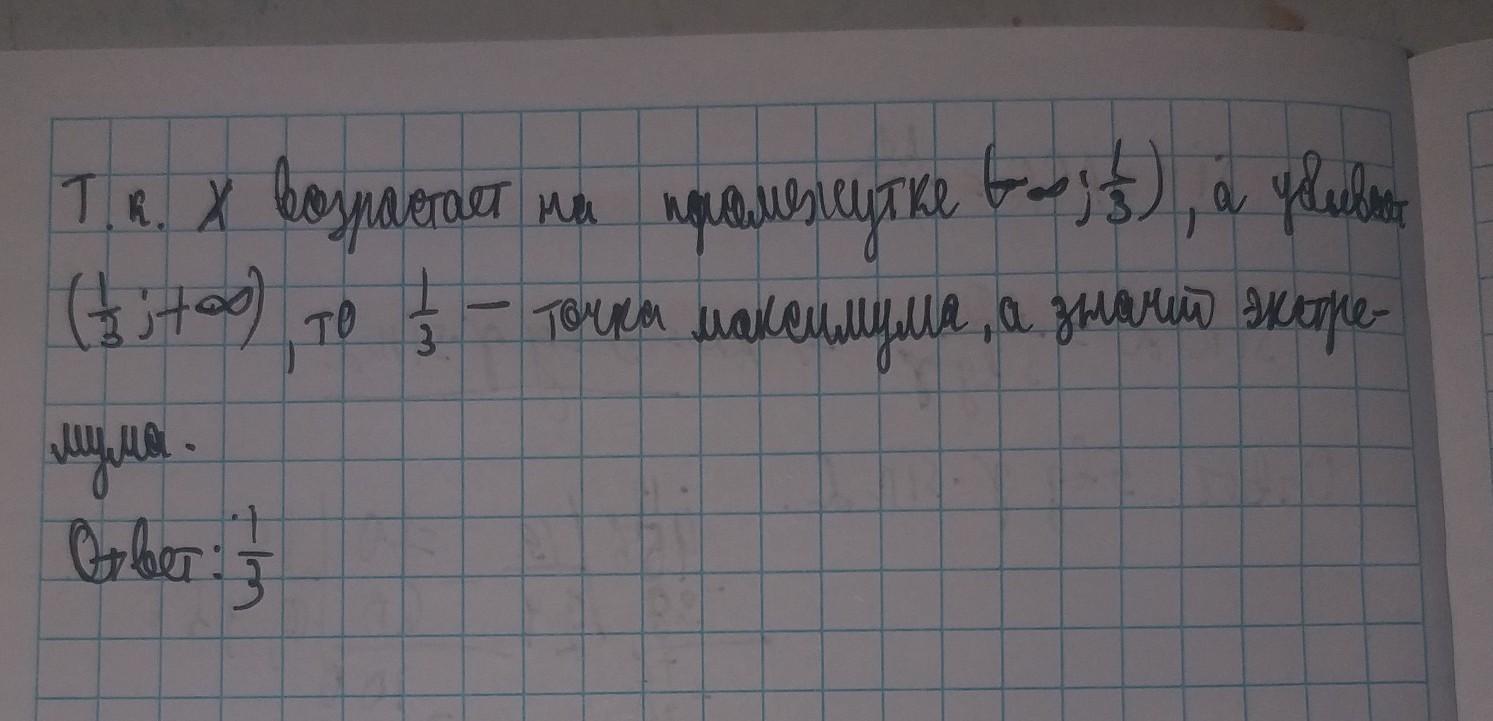 Т.к. х возрастает на промежутке (-∞; 1/3), а убывает
(1/3; +∞), то 1/3 — точка максимума, а значит экстре-
мума.
Ответ: 1/3